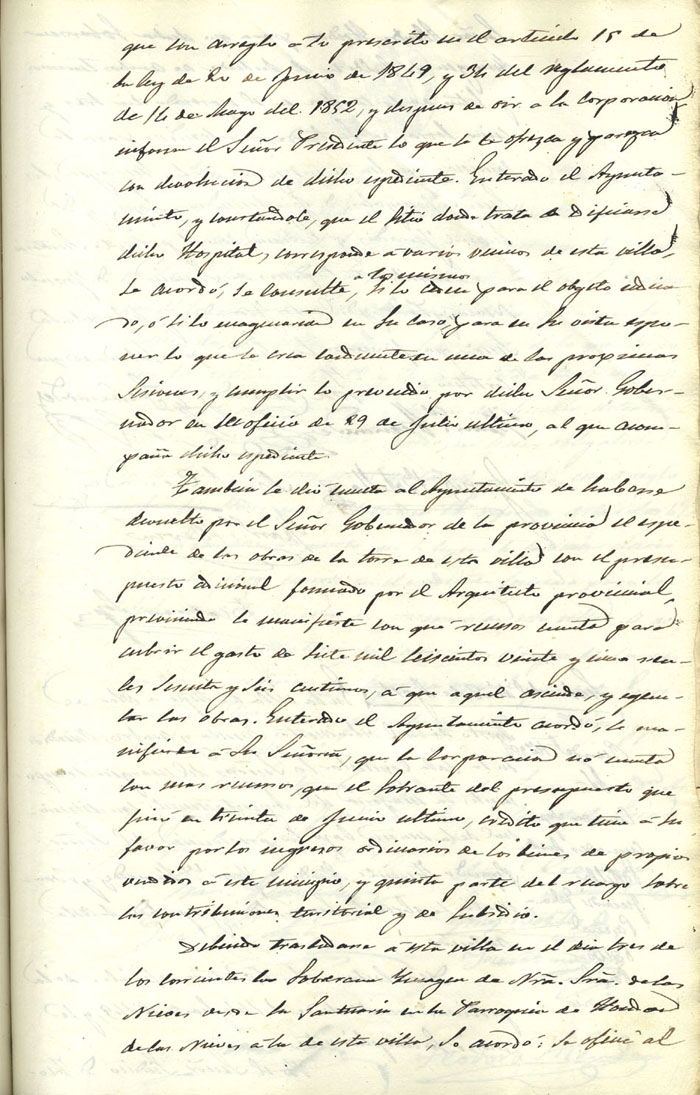 que con arreglo á lo prescrito en el artículo 15 de
la ley de 20 de Junio de 1849, y 34 del reglamento
de 14 de Mayo del 1852, y despues de oir á la corporacion
informe el Señor Presidente lo que se le ofrezca y parezca
con devolucion de dicho espediente. Enterado el Ayunta-
miento, y constándole, que el sitio donde trata de edificarse
dicho Hospital, corresponde á varios vecinos de esta villa,
se acordó, se consulte á los mismos, si lo ceden para el objeto indica-
do, ó si lo enagenarian en su caso, para en su vista espo-
ner lo que se crea conducente en una de las proximas
Sesiones, y cumplir lo prevenido por dicho Señor Gober-
nador en su oficio de 29 de Julio ultimo, al que acom-
paña dicho espediente.
Tambien se dió cuenta al Ayuntamiento de haberse
devuelto por el Señor Gobernador de la provincia el espe-
diente de las obras de la torre de esta villa con el presu-
puesto adicional formado por el Arquitecto provincial,
previniendo se manifieste con que recursos cuenta para
cubrir el gasto de siete mil seiscientos veinte y uno rea-
les sesenta y seis centimos, á que aquel asciende, y ejecu-
tar las obras. Enterado el Ayuntamiento acordó, se ma-
nifieste á Su Señoria, que la Corporacion no cuenta
con mas recursos, que el sobrante del presupuesto que
finó en treinta de Junio ultimo, crédito que tiene á su
favor por los ingresos ordinarios de los bienes de propios
vendidos á este municipio, y quinta parte del recargo sobre
las contribuciones territorial y de Subsidio.
Debiendo trasladarse á esta villa en el dia tres de
los corrientes la Soberana Ymagen de Ntra. Sra. de las
Nieves desde la Santuaria en la Parroquia de Hondon
de las Nieves á la de esta villa, se acordó: se oficie al